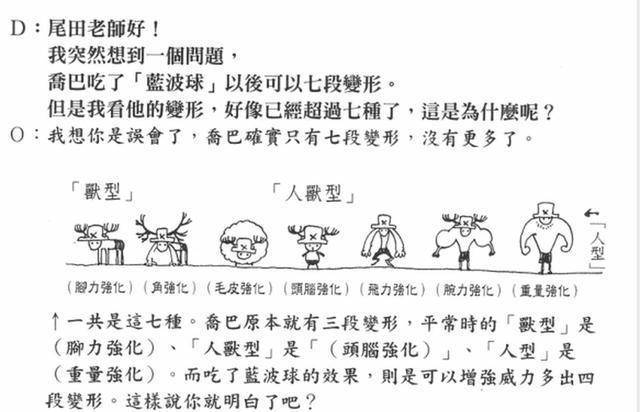 D：尾田老師好！
我突然想到一個問題，
喬巴吃了「藍波球」以後可以七段變形。
但是我看他的變形，好像已經超過七種了，這是為什麼呢？
O：我想你是誤會了，喬巴確實只有七段變形，沒有更多了。
「獸型」 「人獸型」
←「人型」
（腳力強化）（角強化）（毛皮強化）（頭腦強化）（飛力強化）（腕力強化）（重量強化）
↑一共是這七種。喬巴原本就有三段變形，平常時的「獸型」是
（腳力強化）、「人獸型」是「（頭腦強化）」、「人型」是
（重量強化）。而吃了藍波球的效果，則是可以增強威力多出四
段變形。這樣說你就明白了吧？